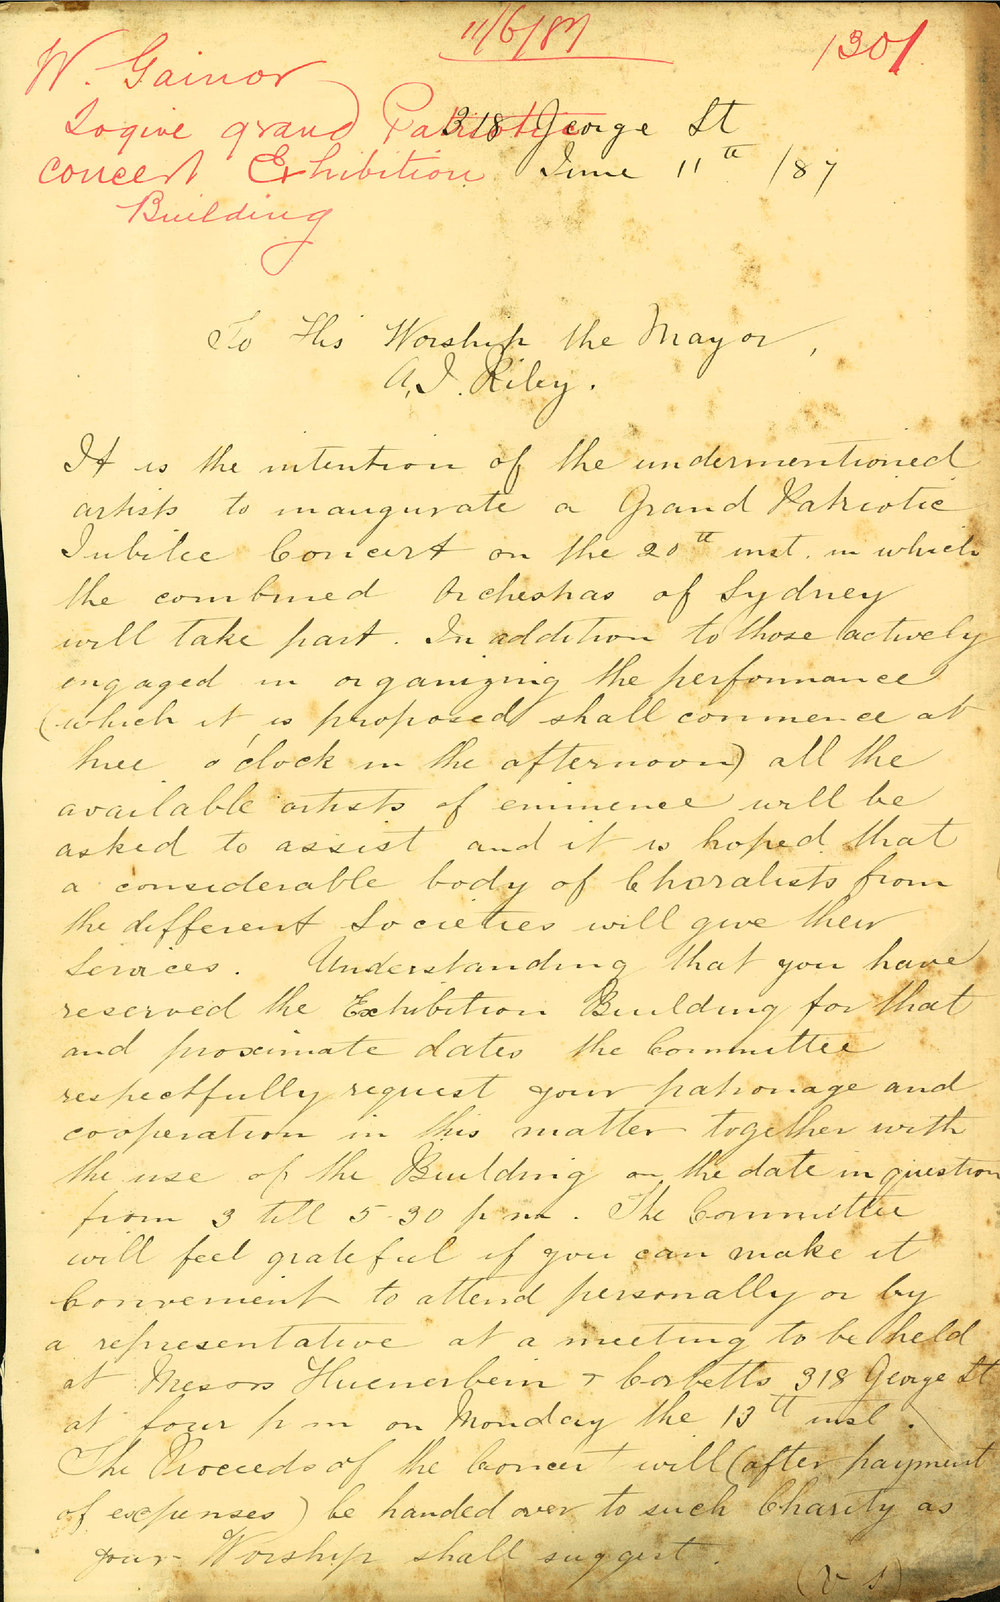 11/6/87
1301
W. Gainor
To give grand Patriotic
concert Exhibition
Building
318 George St
June 11th /87
To His Worship the Mayor,
A. J. Riley.
It is the intention of the undermentioned
artists to inaugurate a Grand Patriotic
Jubilee Concert on the 20th inst. in which
the combined Orchestras of Sydney
will take part. In addition to those actively
engaged in organizing the performance
(which it is proposed shall commence at
three o'clock in the afternoon) all the
available artists of eminence will be
asked to assist and it is hoped that
a considerable body of Choralists from
the different Societies will give their
Services. Understanding that you have
reserved the Exhibition Building for that
and proximate dates the Committee
respectfully request your patronage and
cooperation in this matter together with
the use of the Building on the date in question
from 3 till 5-30 p.m. The Committee
will feel grateful if you can make it
Convenient to attend personally or by
a representative at a meeting to be held
at Messrs Huenerbein & Corbetts 318 George St
at four p m on Monday the 13th inst.
The Proceeds of the Concert will (after payment
of expenses) be handed over to such Charity as
your Worship shall suggest.